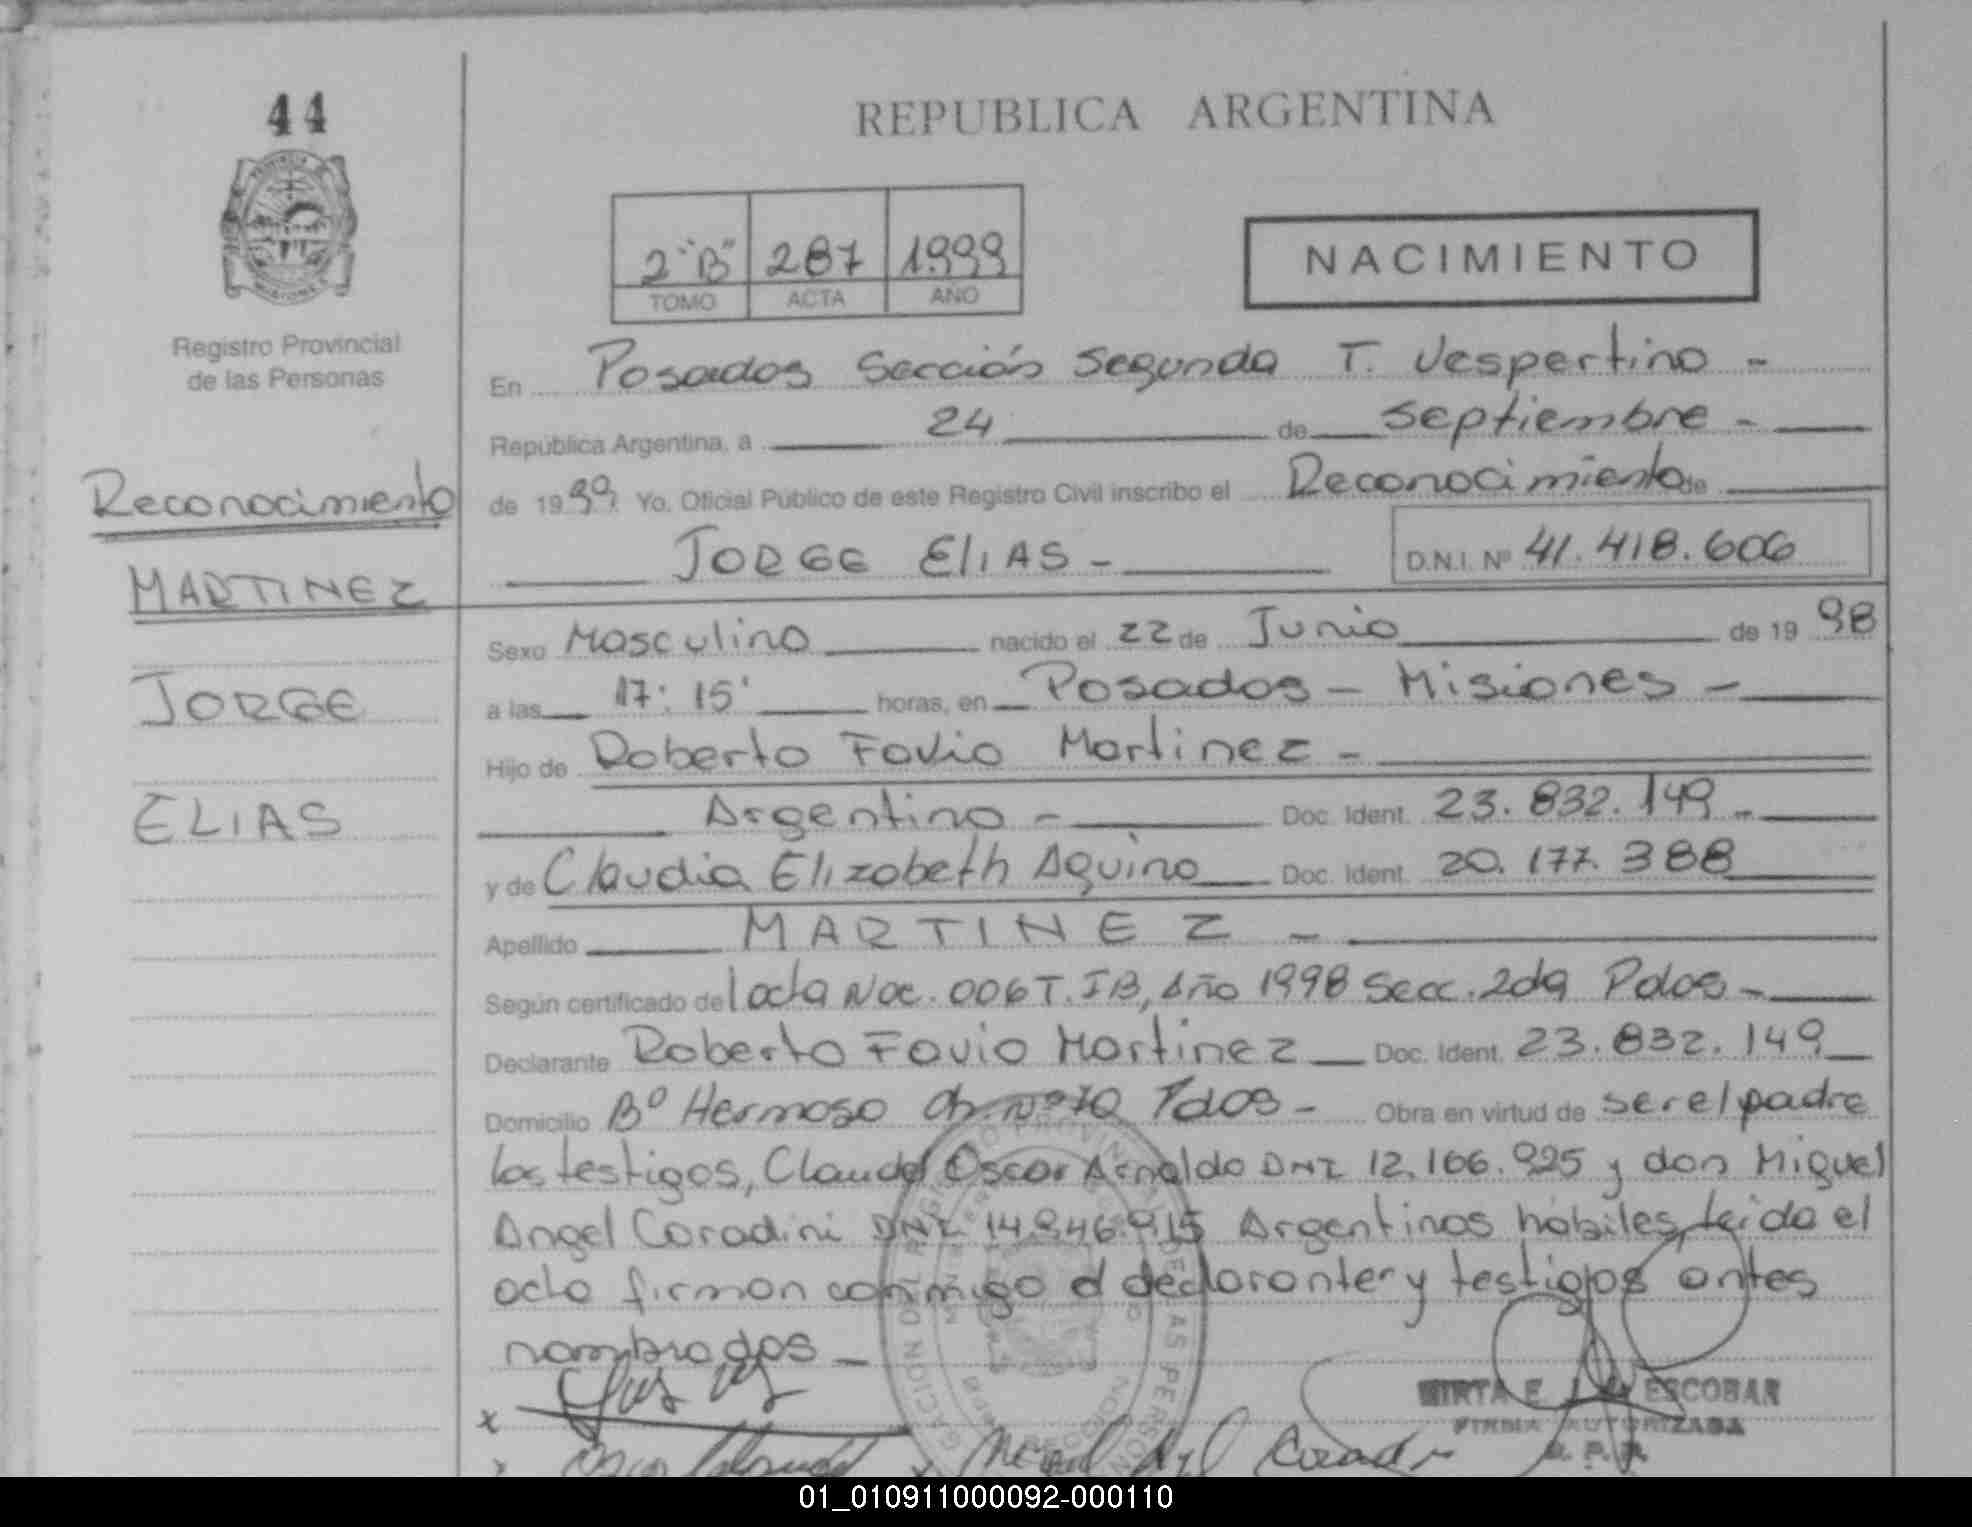 44
REPUBLICA ARGENTINA
2 "B" 287 1999
TOMO ACTA AÑO
NACIMIENTO
Registro Provincial
de las Personas
En Posadas Sección Segunda T. Vespertino -
República Argentina, a 24 de Septiembre -
de 1999 Yo, Oficial Público de este Registro Civil inscribo el Reconocimiento de
JORGE ELIAS - D.N.I. Nº 41.418.606
Reconocimiento
MARTINEZ
JORGE
ELIAS
Sexo Masculino nacido el 22 de Junio de 19 98
a las 17:15' horas, en Posadas - Misiones -
Hijo de Roberto Favio Martinez -
Argentino - Doc. Ident. 23.832.149 -
y de Claudia Elizabeth Aquino Doc. Ident. 20.177.388
Apellido MARTINEZ -
Según certificado de l acta Nac. 006 T. IB, Año 1998 Secc. 2da Pdas -
Declarante Roberto Favio Martinez Doc. Ident. 23.832.149
Domicilio Bº Hermoso Ch. Nº 70 Pdas - Obra en virtud de ser el padre
los testigos, Claudel Oscar Arnaldo DNI 12.166.925 y don Miguel
Angel Coradini DNI 14.946.915 Argentinos hábiles, leida el
acta firman conmigo el declarante y testigos antes
nombrados -
MIRTA E. ESCOBAR
FIRMA AUTORIZADA
R. P. P.
01_010911000092-000110